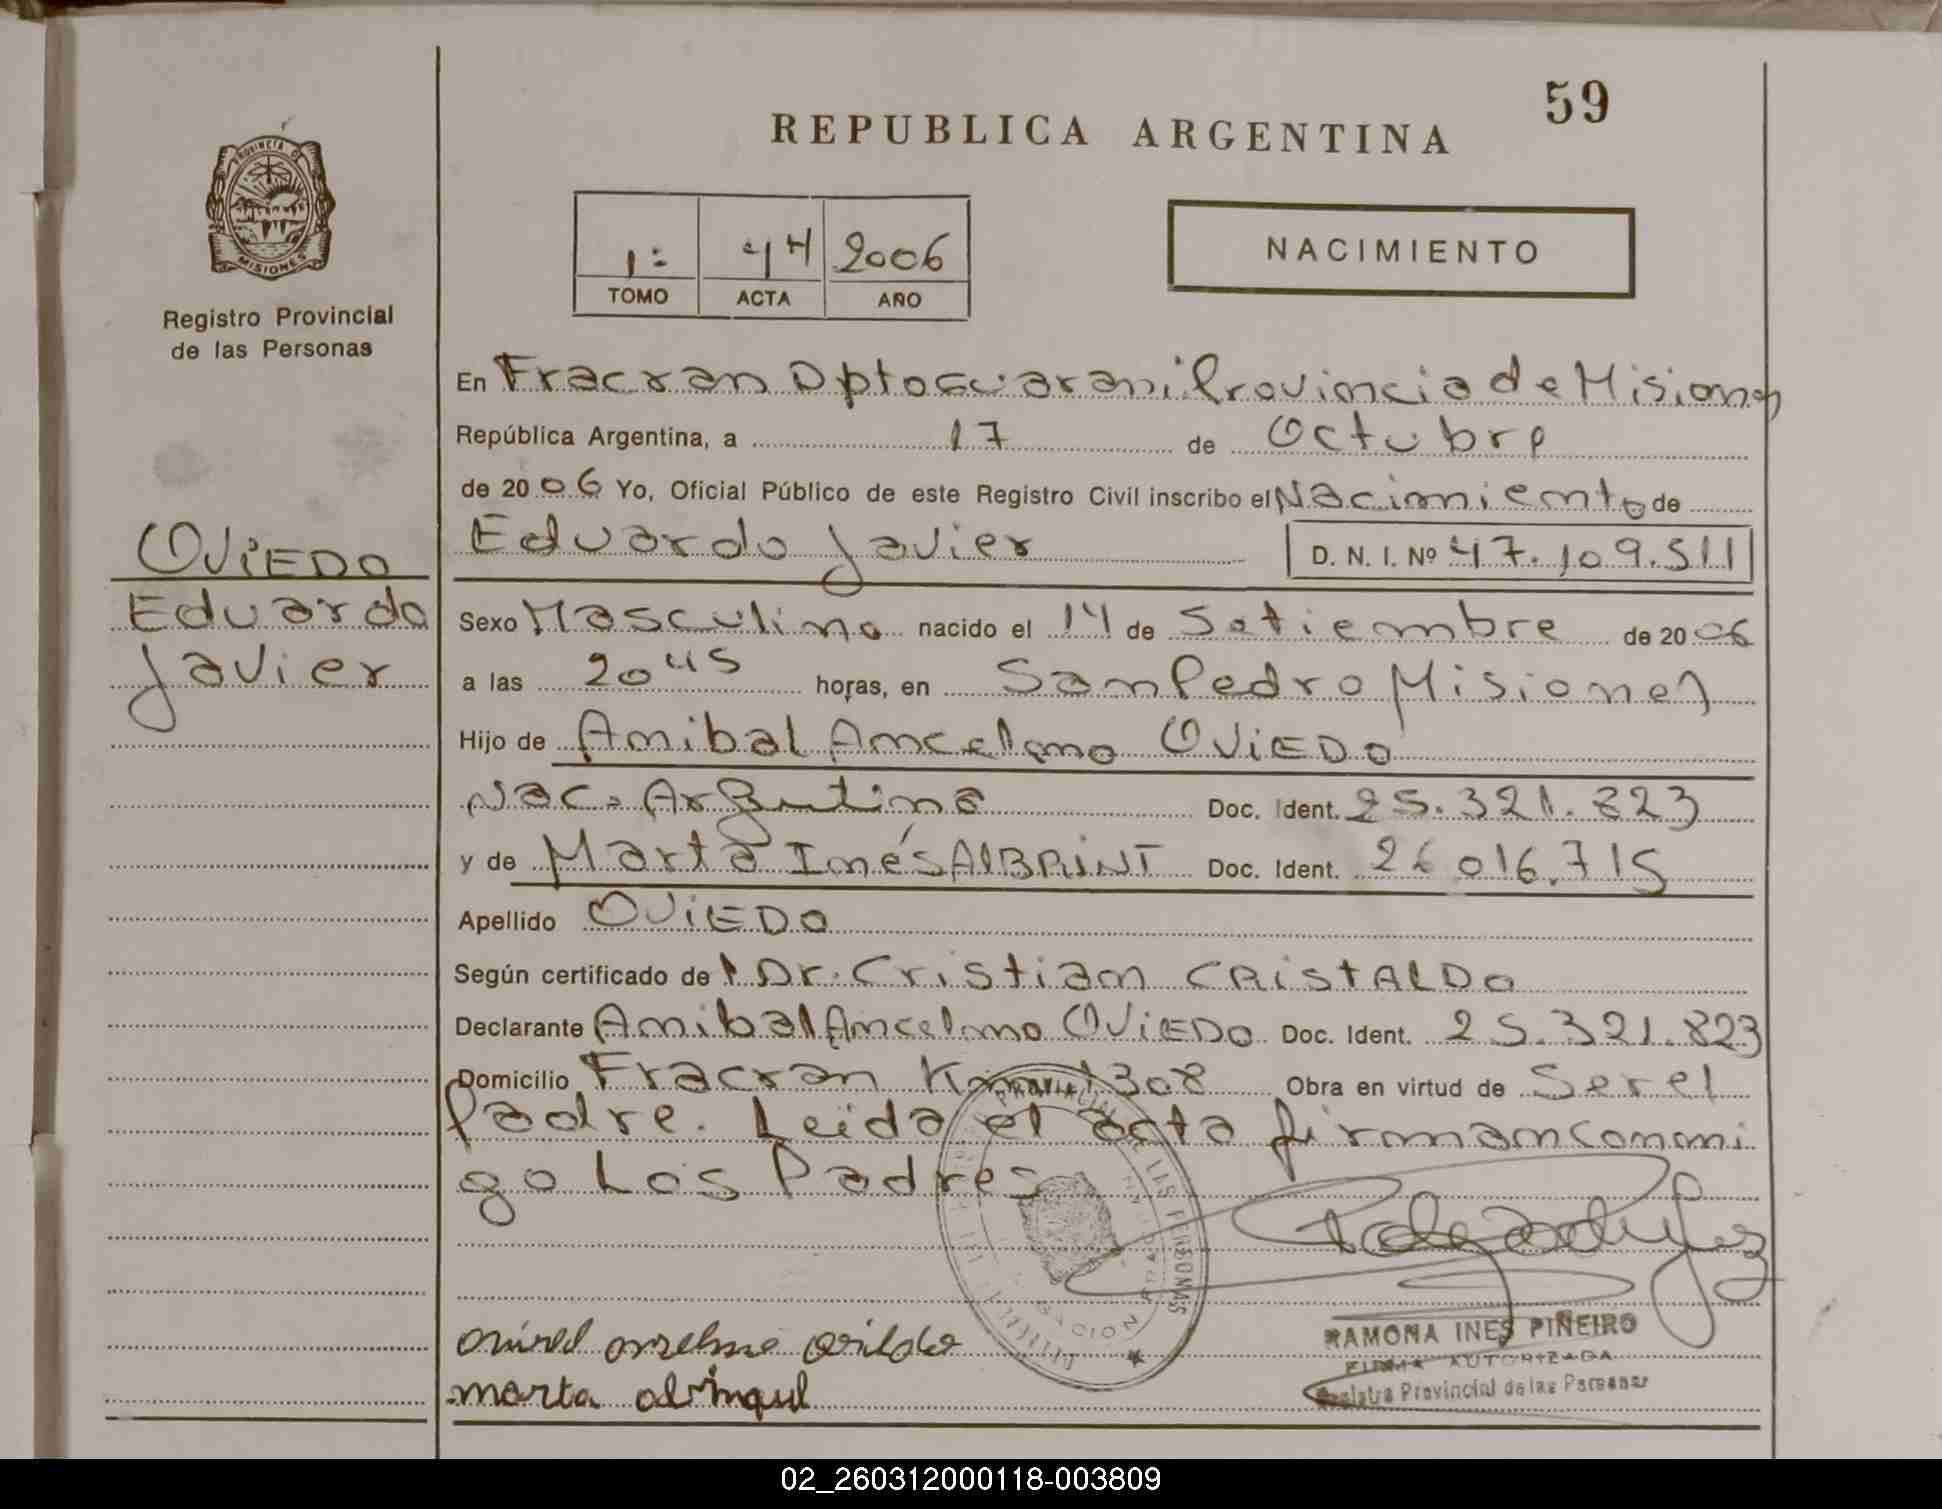 59
REPUBLICA ARGENTINA
PROVINCIA D
MISIONES
Registro Provincial
de las Personas
1= 44 2006
TOMO ACTA AÑO
NACIMIENTO
En Fracran Dpto Guarani Provincia de Misiones
República Argentina, a 17 de Octubre
de 2006 Yo, Oficial Público de este Registro Civil inscribo el Nacimiento de
Eduardo Javier D. N. I. Nº 47.109.511
OViEDO
Eduardo
Javier
Sexo Masculino nacido el 14 de Setiembre de 2006
a las 20 45 horas, en San Pedro Misiones
Hijo de Anibal Ancelmo OViEDO
Nac. Argentina Doc. Ident. 25.321.823
y de Marta Inés AlBRiNT Doc. Ident. 26.016.715
Apellido OViEDO
Según certificado de l Dr. Cristian CRiStALDo
Declarante Anibal Ancelmo OViEDO Doc. Ident. 25.321.823
Domicilio Fracran Km 1308 Obra en virtud de Ser el
Padre. Leida el acta firman conmi
go Los Padres
PROVINCIAL DE LAS PERSONAS
marta
RAMONA INES PIÑEIRO
FIRMA AUTORIZADA
Registro Provincial de las Personas
02_260312000118-003809